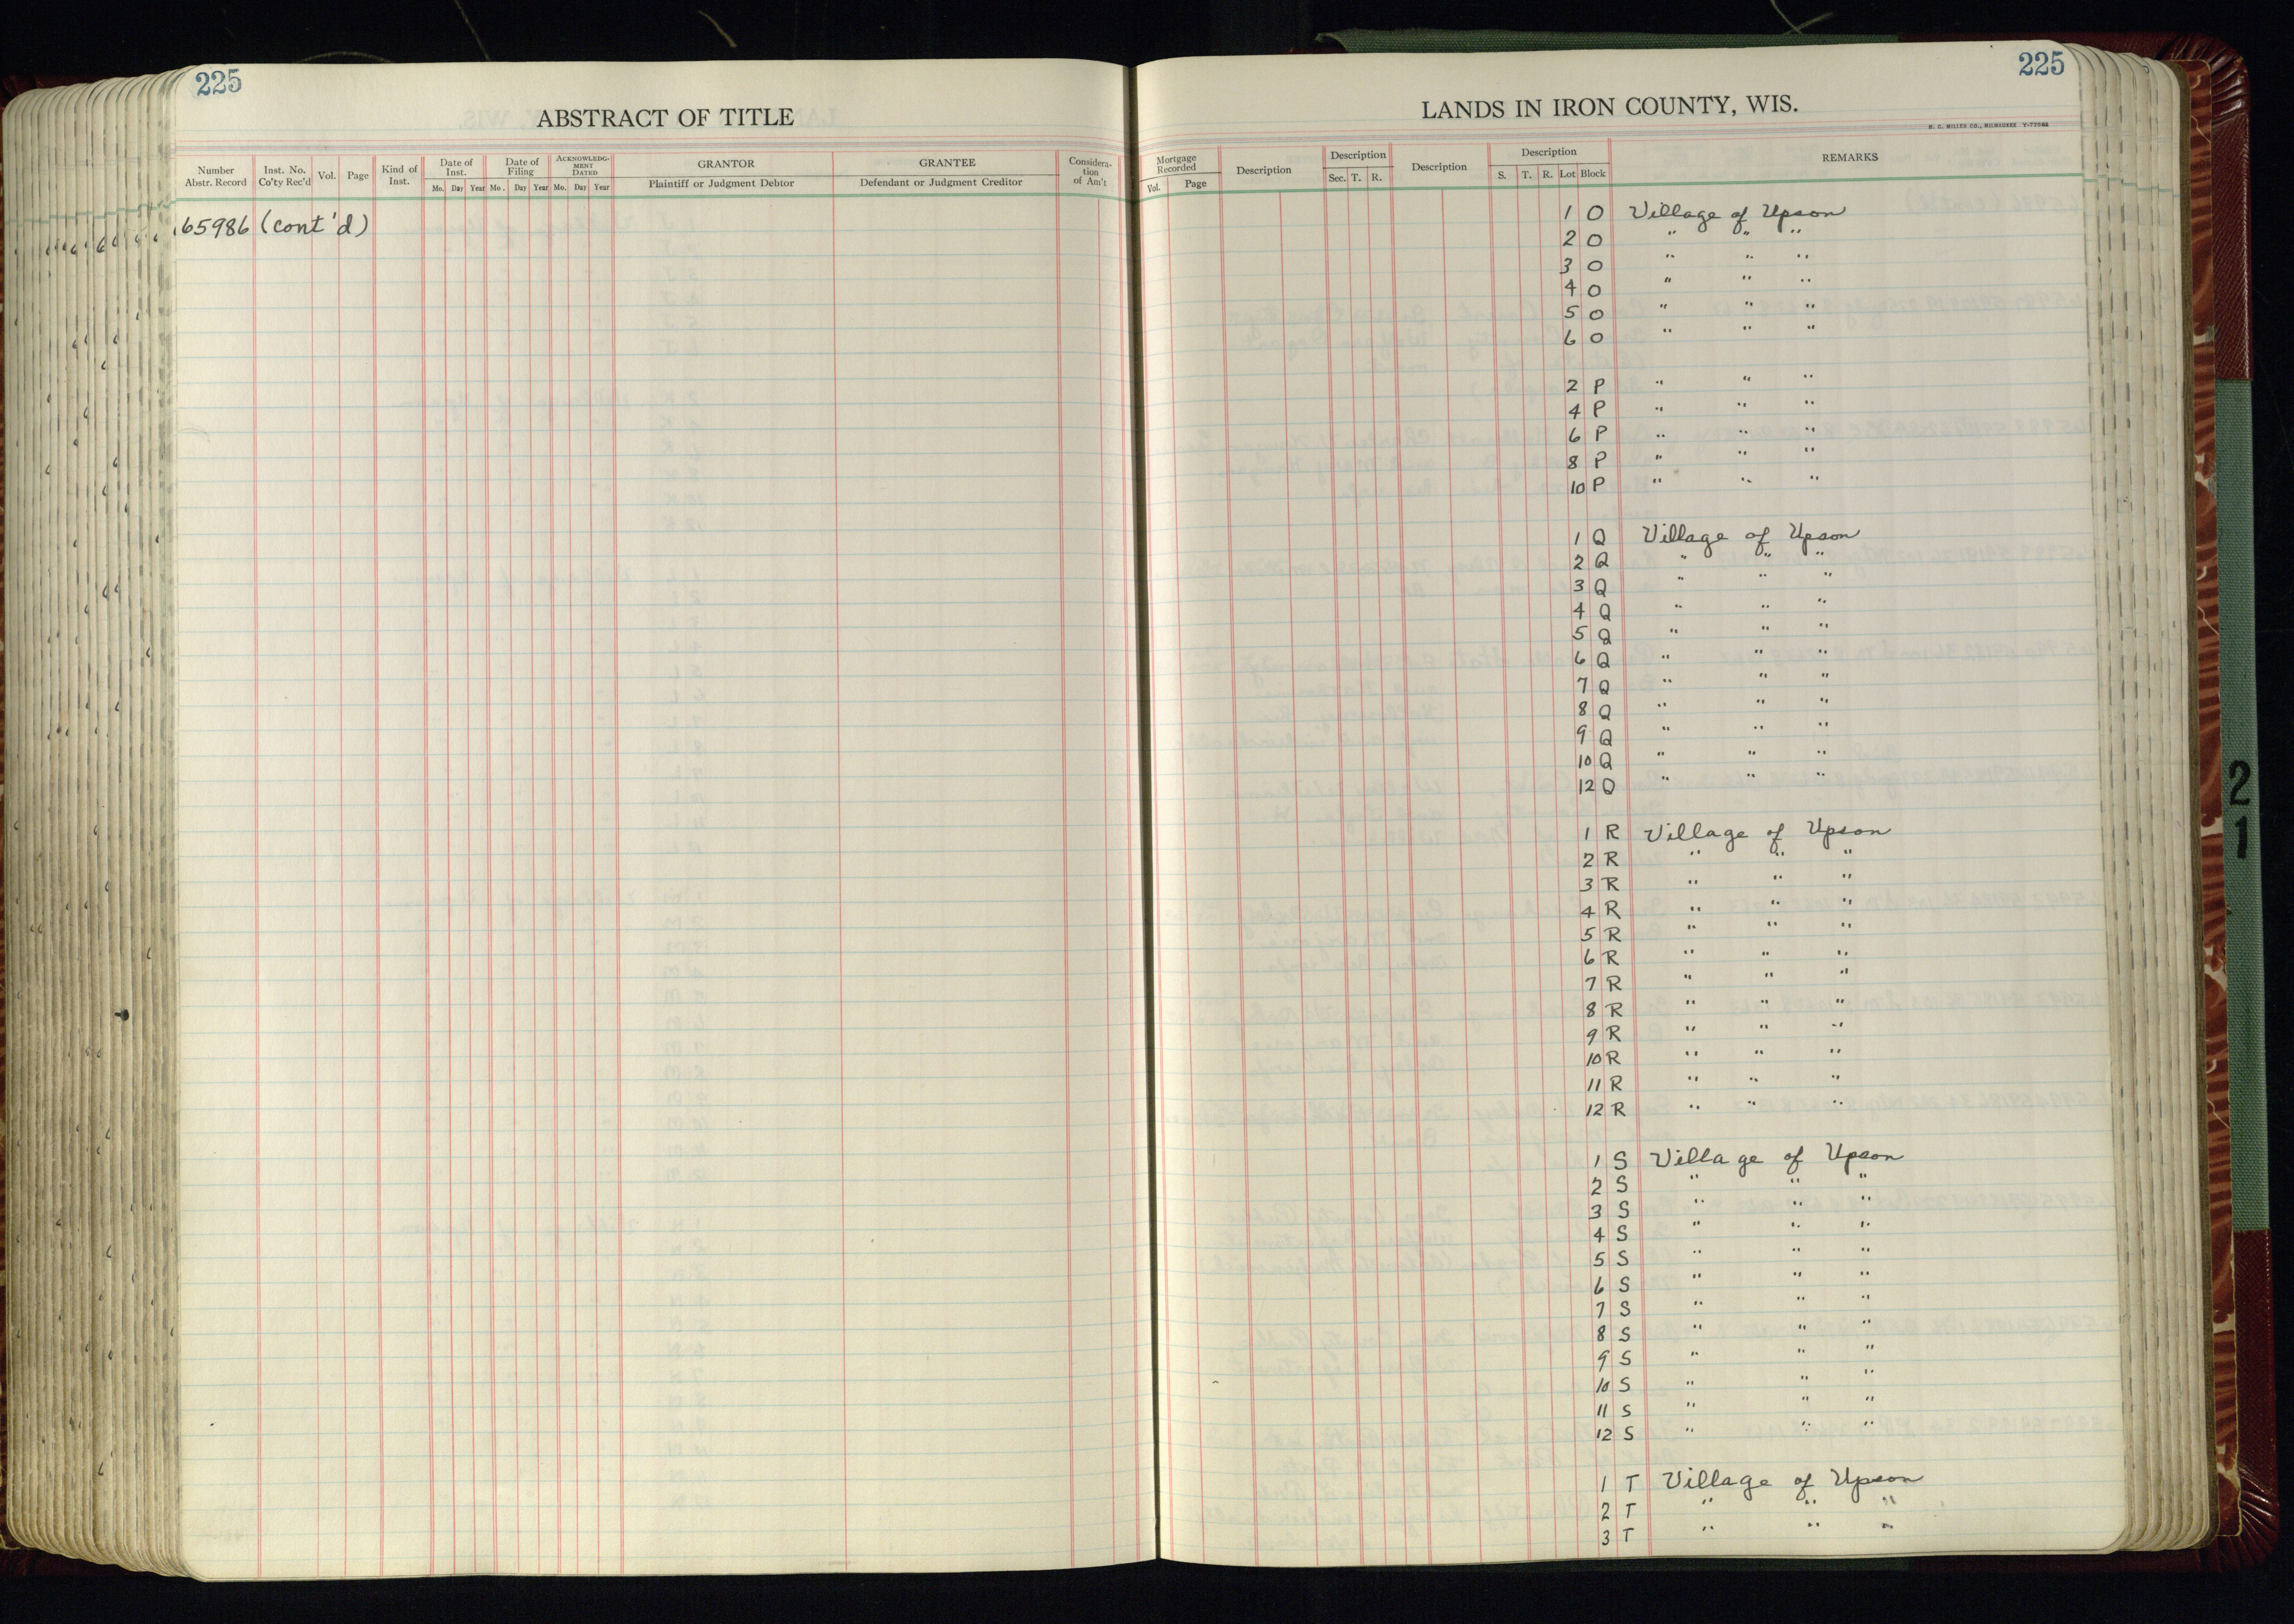 225
ABSTRACT OF TITLE
Number Abstr. Record
Inst. No. Co'ty Rec'd
Vol.
Page
Kind of Inst.
Date of Inst.
Mo. Day Year
Date of Filing
Mo. Day Year
ACKNOWLEDG-MENT DATED
Mo. Day Year
GRANTOR
Plaintiff or Judgment Debtor
GRANTEE
Defendant or Judgment Creditor
Considera-tion of Am't
65986 (cont'd)
225
LANDS IN IRON COUNTY, WIS.
H. C. MILLER CO., MILWAUKEE
Mortgage Recorded
Vol. Page
Description
Description
Sec. T. R.
Description
Description
S. T. R. Lot Block
REMARKS
1 O Village of Upson
2 O " " "
3 O " " "
4 O " " "
5 O " " "
6 O " " "
2 P " " "
4 P " " "
6 P " " "
8 P " " "
10 P " " "
1 Q Village of Upson
2 Q " " "
3 Q " " "
4 Q " " "
5 Q " " "
6 Q " " "
7 Q " " "
8 Q " " "
9 Q " " "
10 Q " " "
12 Q " " "
1 R Village of Upson
2 R " " "
3 R " " "
4 R " " "
5 R " " "
6 R " " "
7 R " " "
8 R " " "
9 R " " "
10 R " " "
11 R " " "
12 R " " "
1 S Village of Upson
2 S " " "
3 S " " "
4 S " " "
5 S " " "
6 S " " "
7 S " " "
8 S " " "
9 S " " "
10 S " " "
11 S " " "
12 S " " "
1 T Village of Upson
2 T " " "
3 T " " "
21